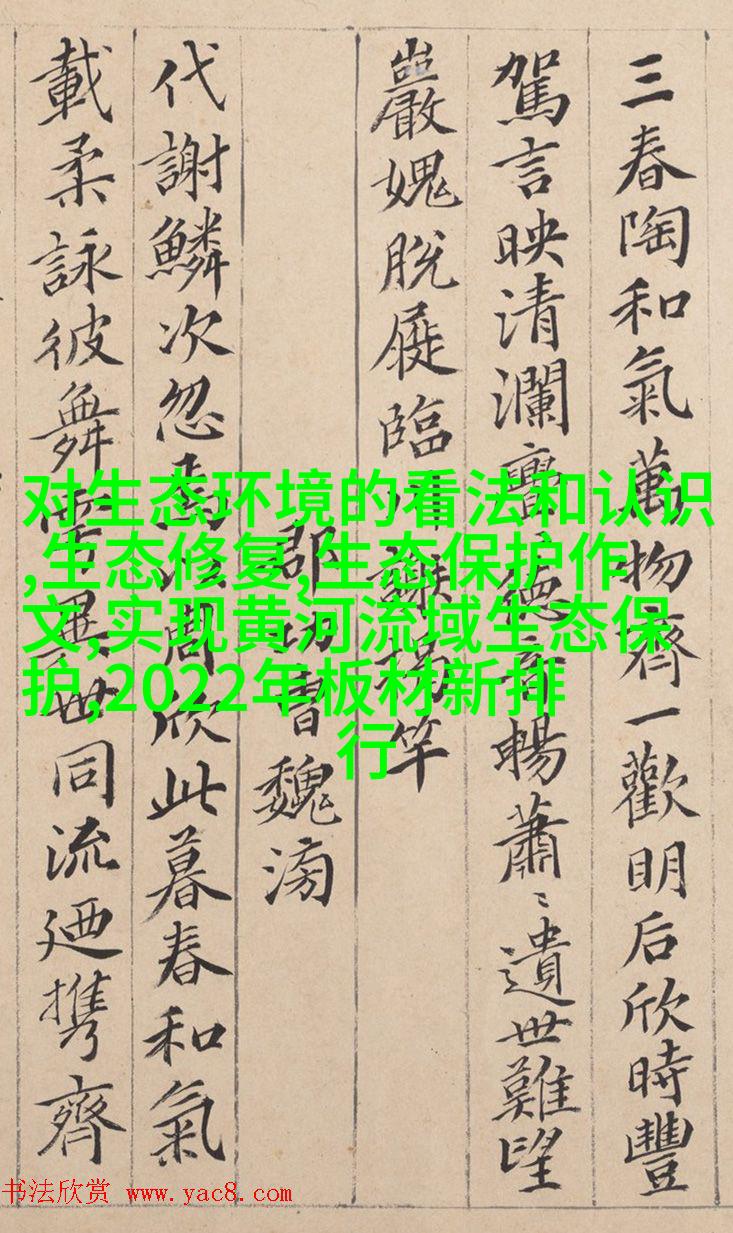 三春陶和氣萬物齊一歡明后欣時豐
駕言映清瀾亹德音暢蕭〻遺世難望
巖愧脫屣臨川謝揭竿
郡功曹魏滂
代謝鱗次忽焉以周欣此暮春和氣
載柔詠彼舞雩異世同流迺携齊
对生态环境的看法和认识
,生态修复,生态保护作
文,实现黄河流域生态保
护,2022年板材新排
行
书法欣赏 www.yac8.com